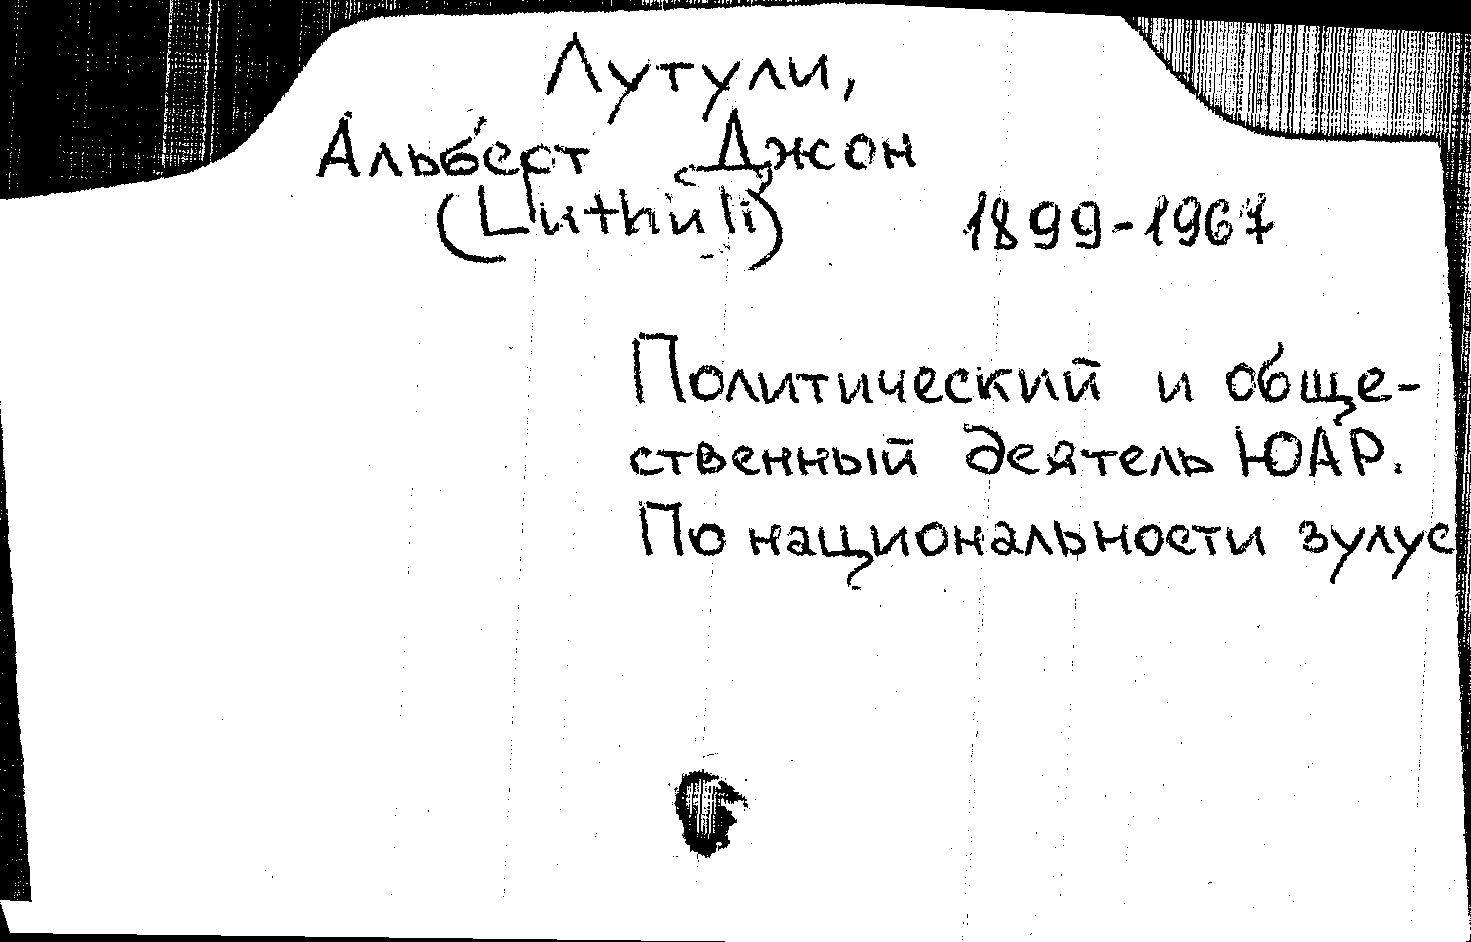 Лутули,
Альберт Джон
(Luthuli) 1899-1967
Политический и обще-
ственный деятель ЮАР.
По национальности зулус